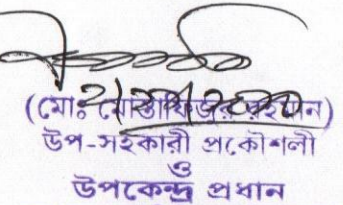 (মোঃ মোস্তাফিজুর রহমান)
উপ-সহকারী প্রকৌশলী
ও
উপকেন্দ্র প্রধান